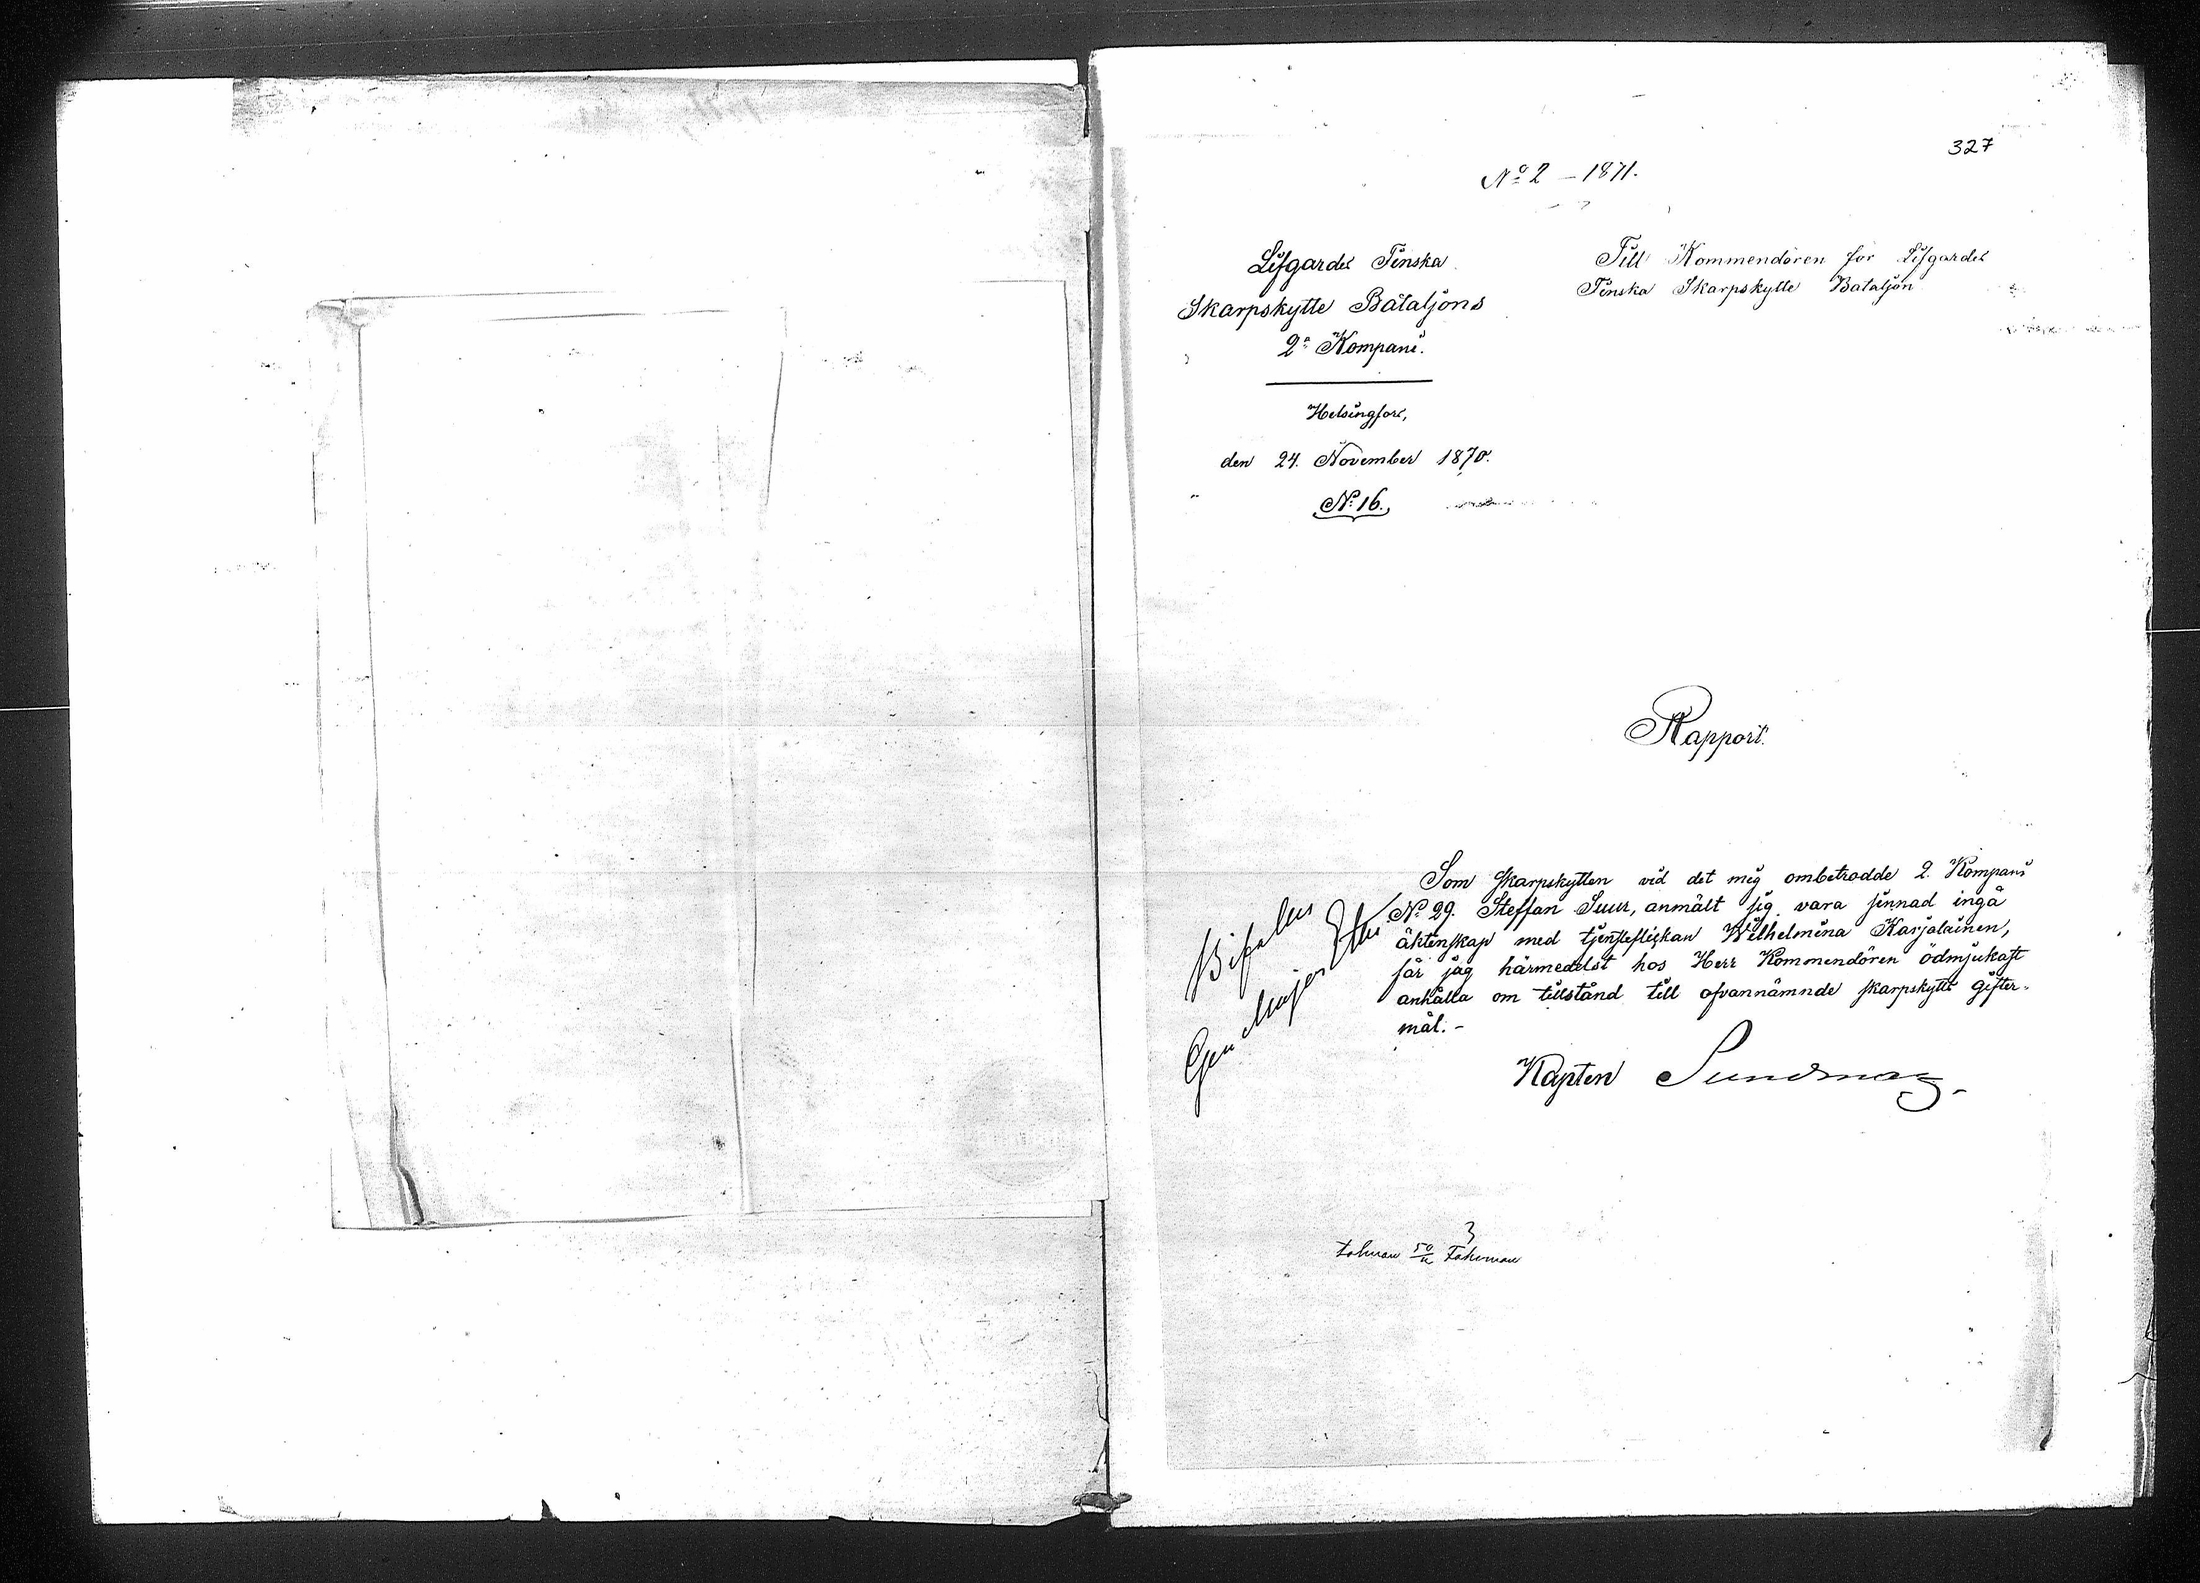 327
No 2 – 1871.
Lifgardes Finska
Skarpskytte Bataljons
2a Kompani.
Helsingfors,
den 24. November 1870.
No 16.
Till Kommendören för Lifgardes
Finska Skarpskytte Bataljon
Rapport.
Som skarpskytten vid det mig ombetrodde 2. Kompani
No 29. Steffan Suur, anmält sig vara sinnad ingå
äktenskap med tjensteflickan Wilhelmina Karjalainen,
får jag härmedelst hos Herr Kommendören ödmjukast
anhålla om tillstånd till ofvannämnde skarpskytts gifter-
mål. –
Bifalles
Gen Major
Kapten Sundman